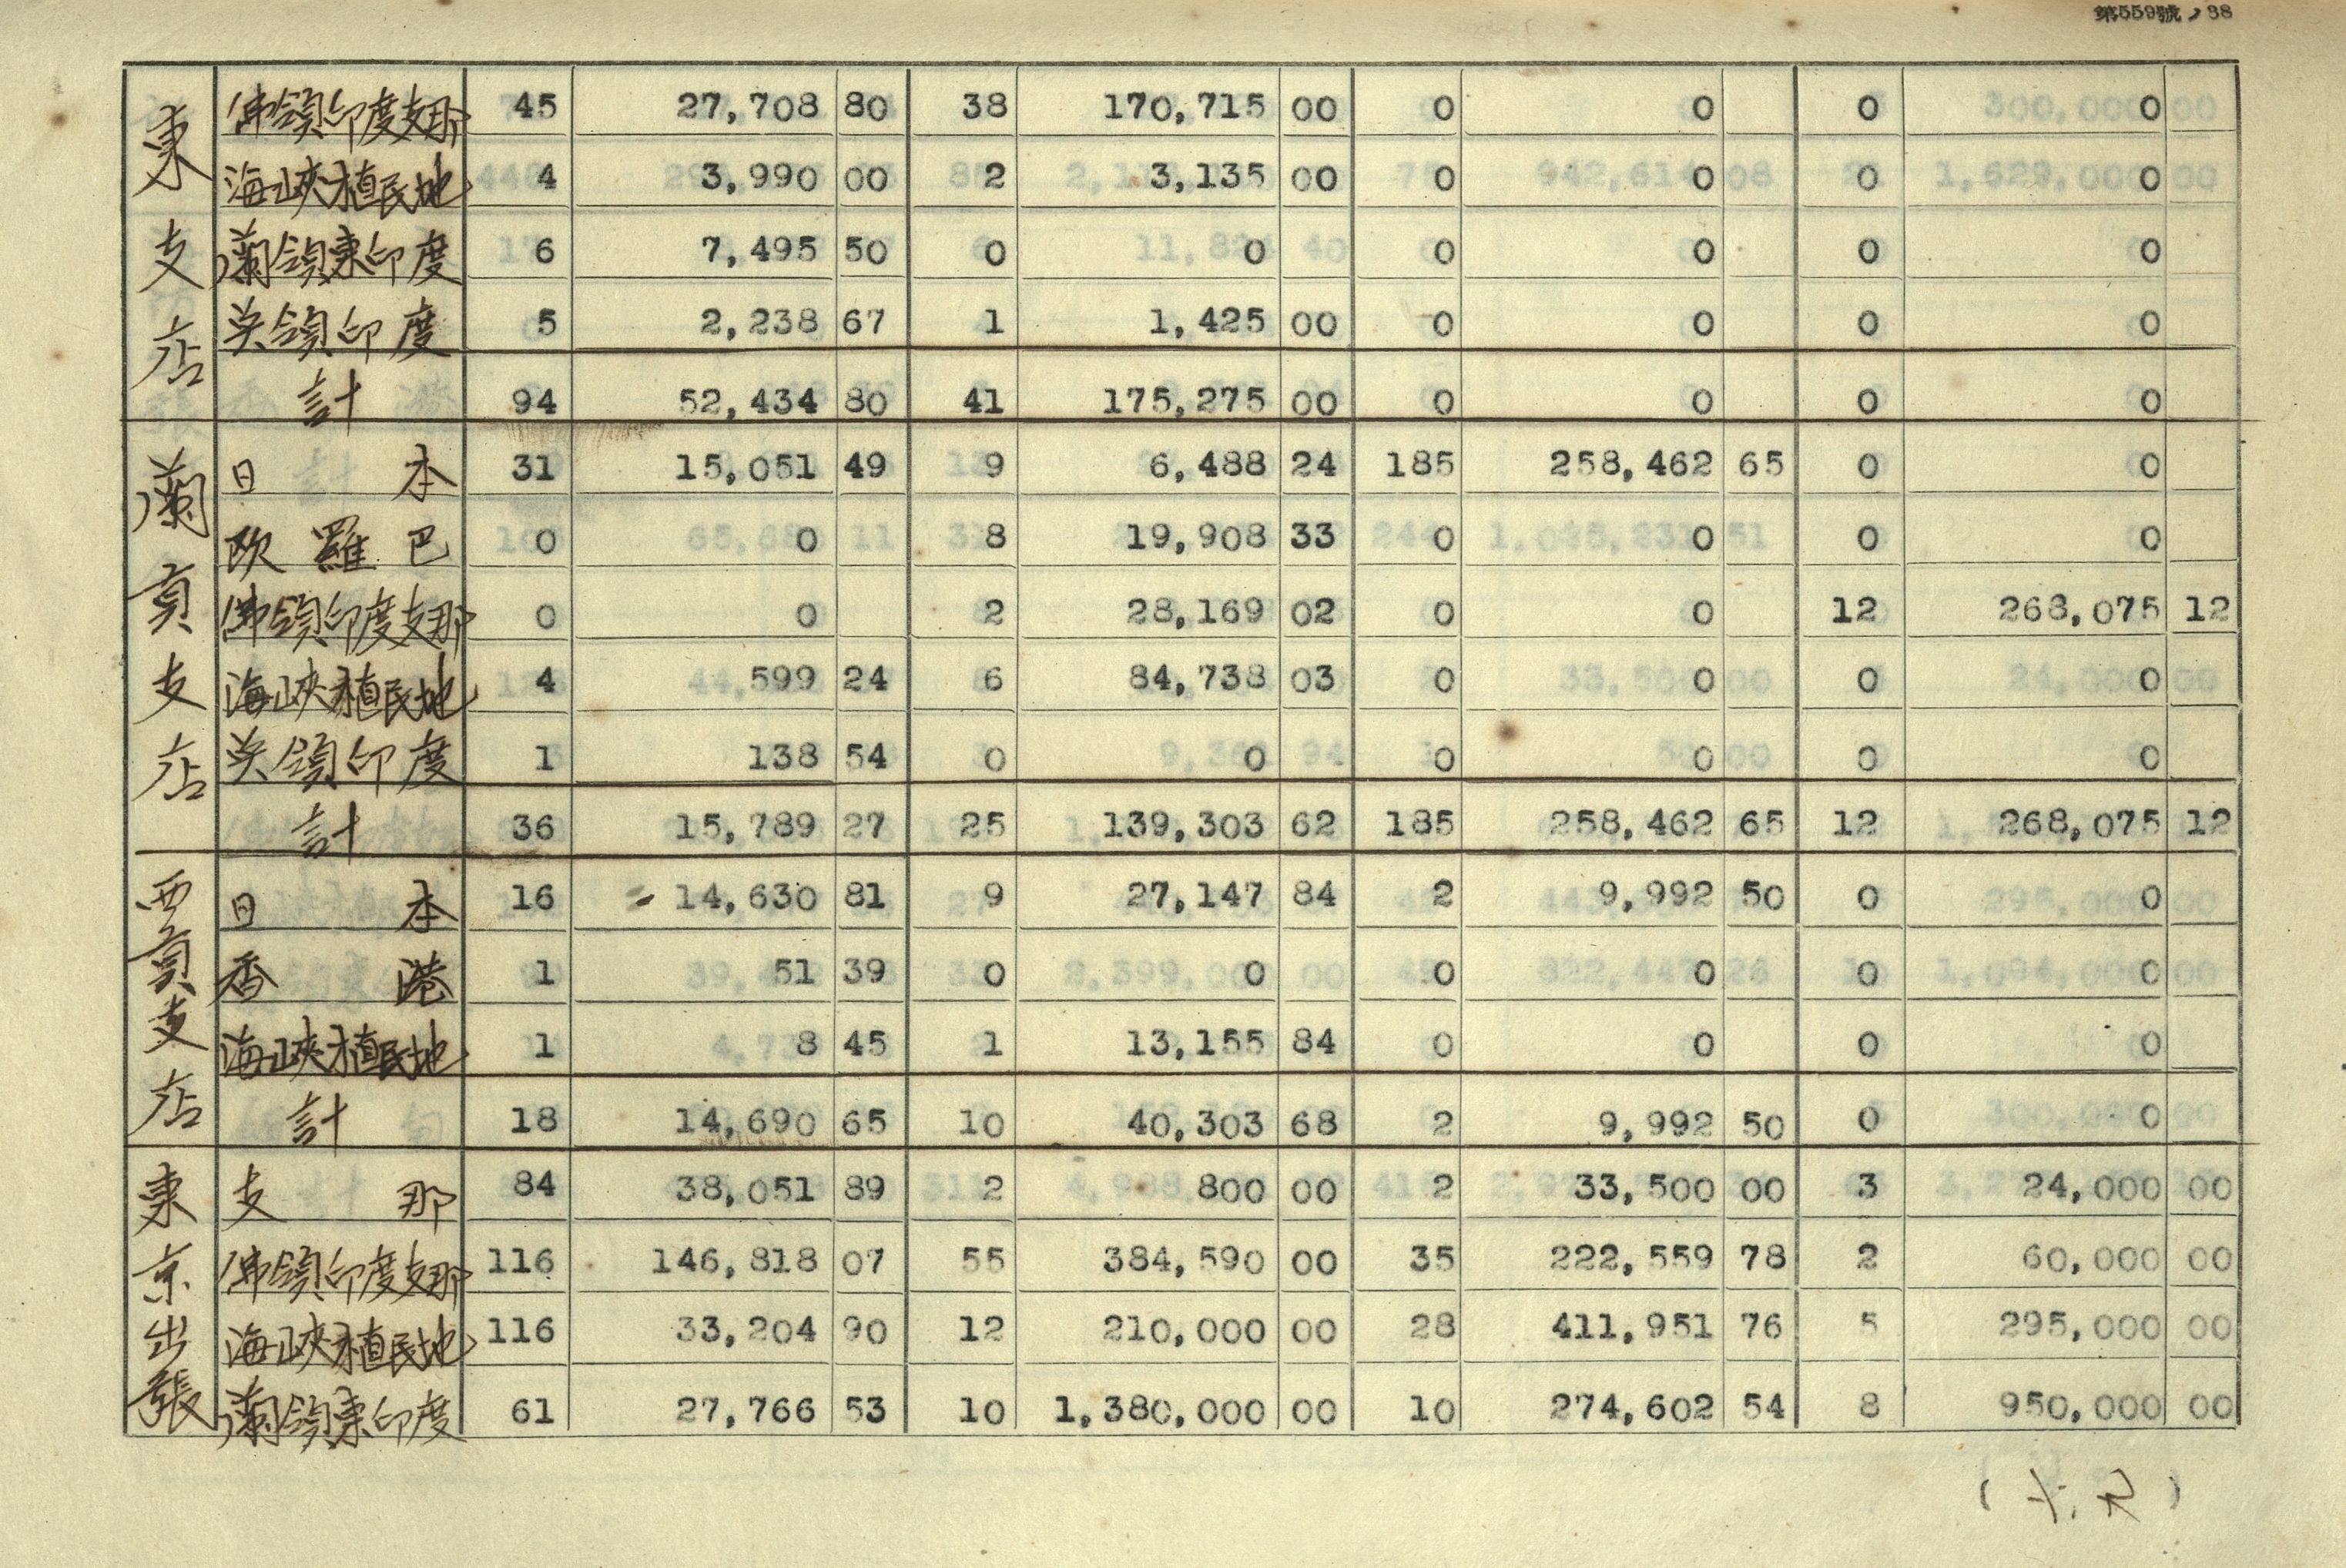 第559號,38
東支店
佛領印度支那 45 27,708 80 38 170,715 00 0 0 0 0
海峽植民地 4 3,990 00 2 3,135 00 0 0 0 0
蘭領東印度 6 7,495 50 0 0 0 0 0 0
英領印度 5 2,238 67 1 1,425 00 0 0 0 0
計 94 52,434 80 41 175,275 00 0 0 0 0
蘭貢支店
日本 31 15,051 49 9 6,488 24 185 258,462 65 0 0
欧羅巴 0 0 8 19,908 33 0 0 0 0
佛領印度支那 0 0 2 28,169 02 0 0 12 268,075 12
海峽植民地 4 599 24 6 84,738 03 0 0 0 0
英領印度 1 138 54 0 0 0 0 0 0
計 36 15,789 27 25 139,303 62 185 258,462 65 12 268,075 12
西貢支店
日本 16 14,630 81 9 27,147 84 2 9,992 50 0 0
香港 1 51 39 0 0 0 0 0 0
海峽植民地 1 8 45 1 13,155 84 0 0 0 0
計 18 14,690 65 10 40,303 68 2 9,992 50 0 0
東京出張
支那 84 38,051 89 2 800 00 2 33,500 00 3 24,000 00
佛領印度支那 116 146,818 07 55 384,590 00 35 222,559 78 2 60,000 00
海峽植民地 116 33,204 90 12 210,000 00 28 411,951 76 5 295,000 00
蘭領東印度 61 27,766 53 10 1,380,000 00 10 274,602 54 8 950,000 00